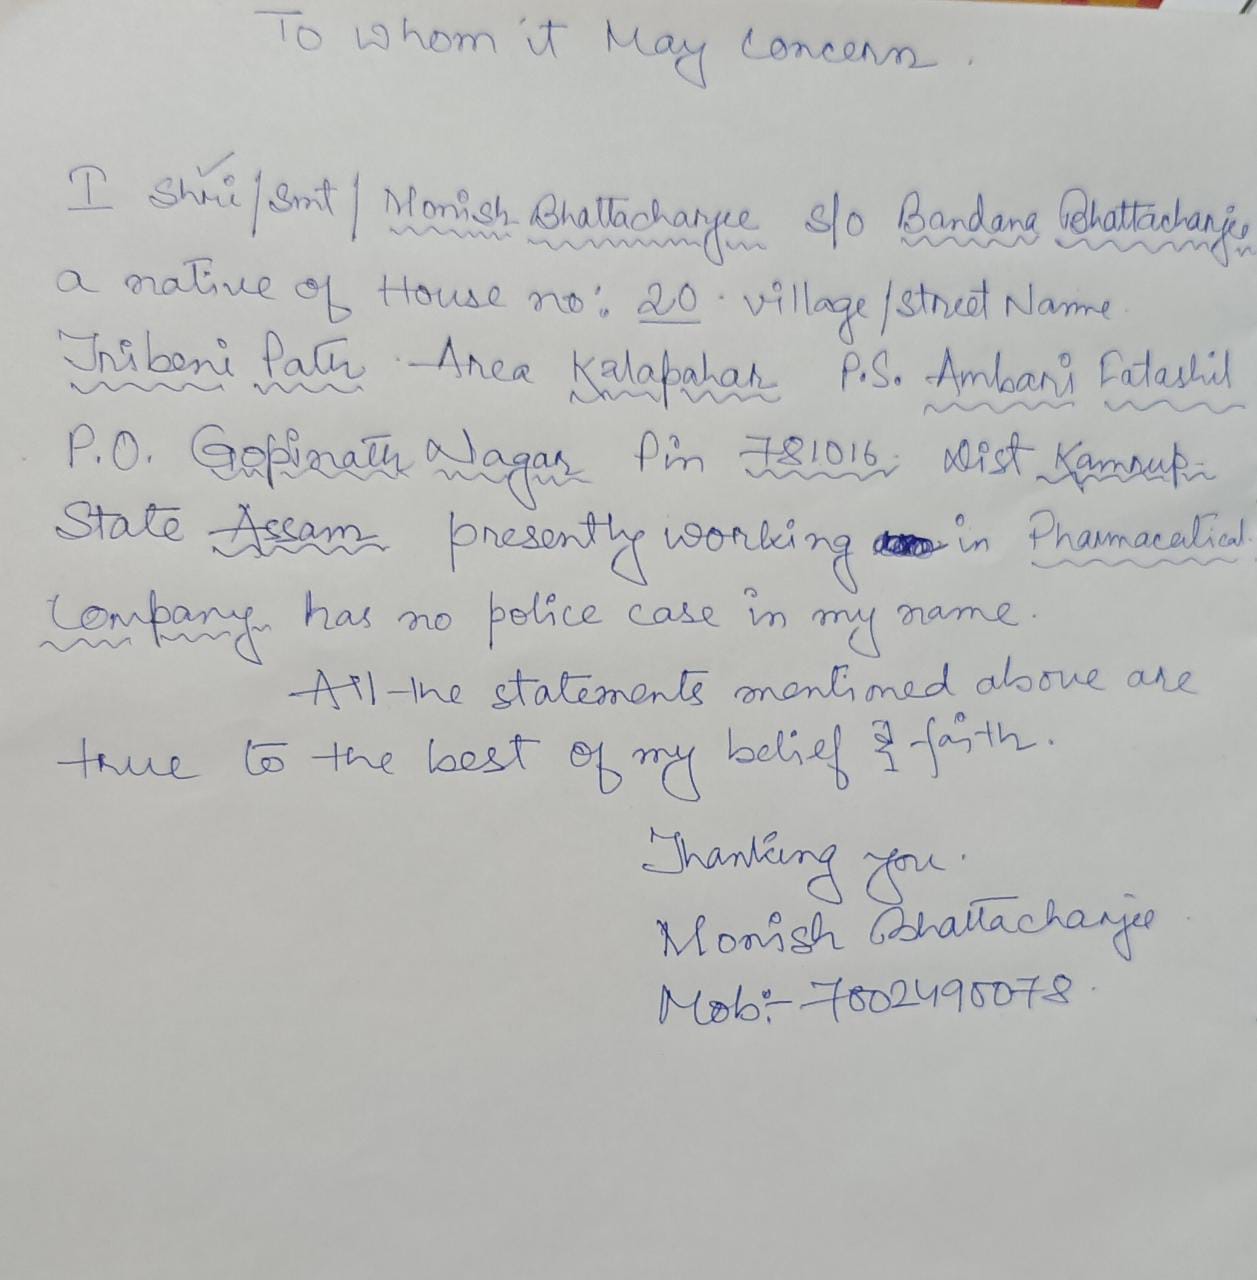 To whom it May Concern.
I Shri/Smt/ Monish Bhattacharjee S/o Bandana Bhattacharjee
a native of House no: 20. village/street Name
Tribeni Path. Area Kalapahar P.S. Ambari Fatashil
P.O. Gopinath Nagar Pin 781016. Dist Kamrup
State Assam presently working in Pharmacetical
Company has no police case in my name.
All the statements mentioned above are
true to the best of my belief & faith.
Thanking you.
Monish Bhattacharjee
Mob:-